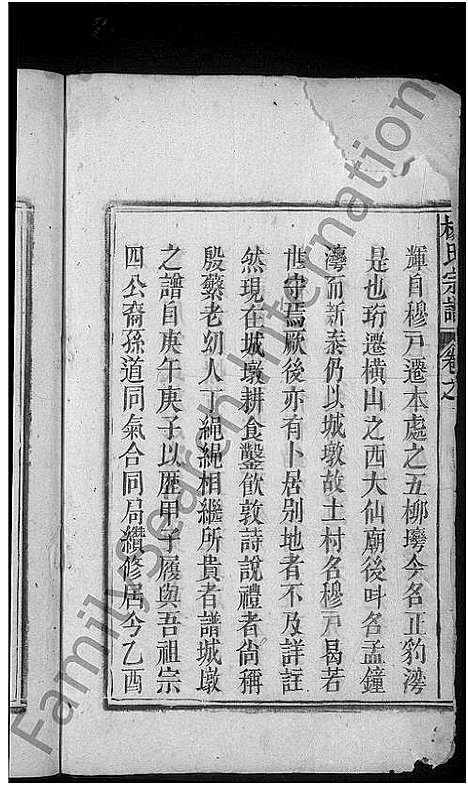 楊氏宗譜 卷之
輝自穆戸遷本處之五柳塆今名正豹塆
是也珩遷橫山之西大仙廟後叫名孟鐘
塆而新泰仍以城墩故土村名穆戸曷若
世守焉厥後亦有卜居别地者不及詳註
然現在城墩耕食鑿飲敦詩說禮者尙稱
殷蘩老幼人丁繩繩相繼所貴者譜城墩
之譜自庚午庚子以歷甲子履與吾祖宗
四公裔孫道同氣合同局纘修居今乙酉
Family Search International